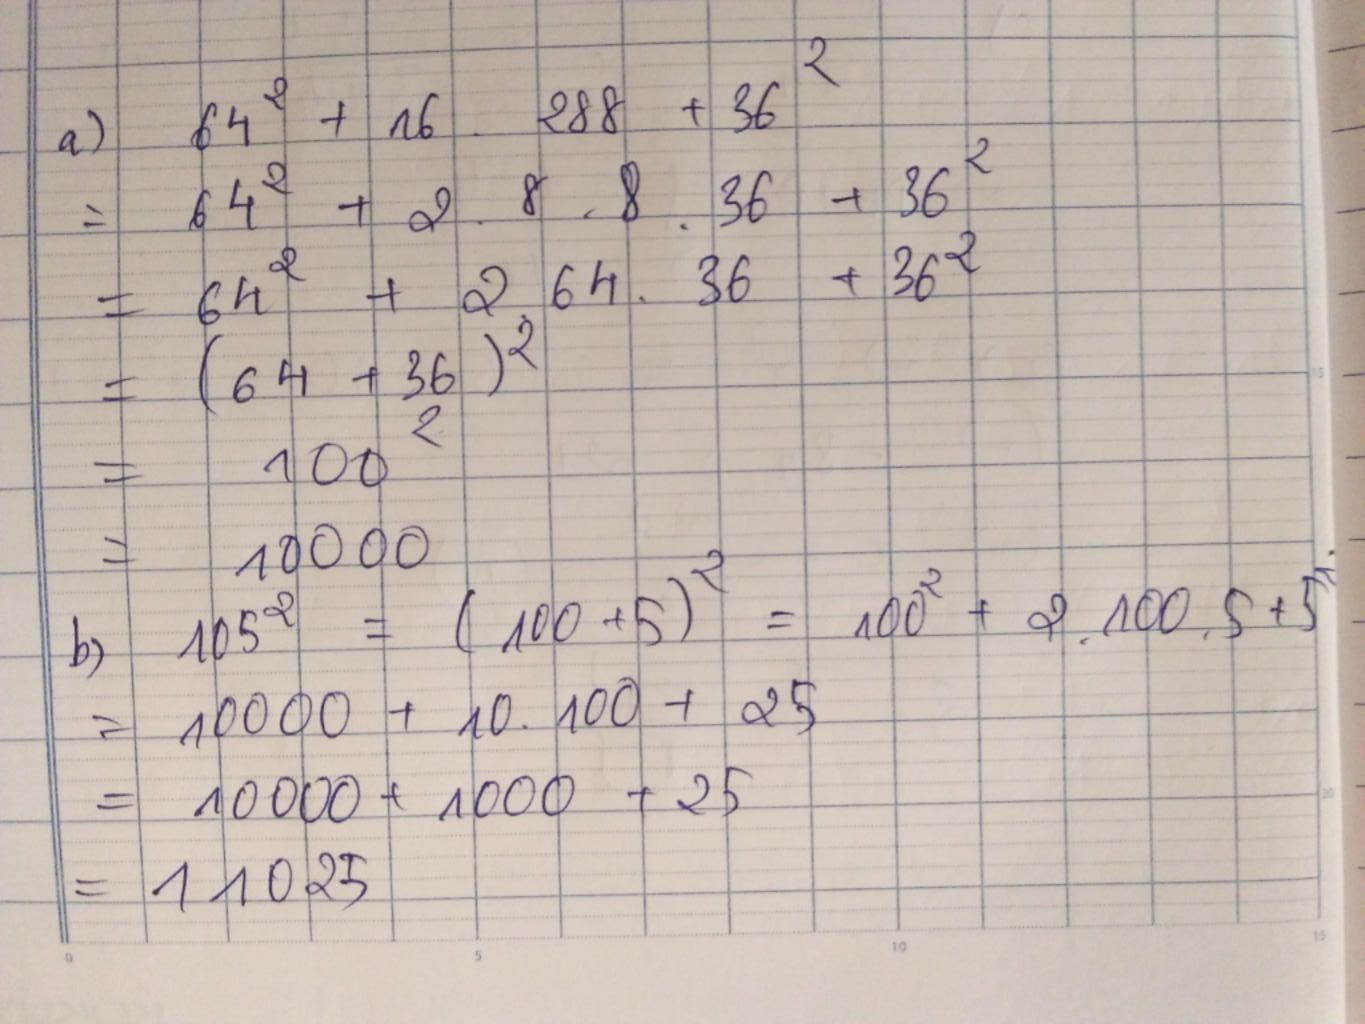 a) 64² + 16 . 288 + 36²
= 64² + 2 . 8 . 8 . 36 + 36²
= 64² + 2 . 64 . 36 + 36²
= (64 + 36)²
= 100²
= 10000
b) 105² = (100 + 5)² = 100² + 2 . 100 . 5 + 5²
= 10000 + 10 . 100 + 25
= 10000 + 1000 + 25
= 11025
0 5 10 15